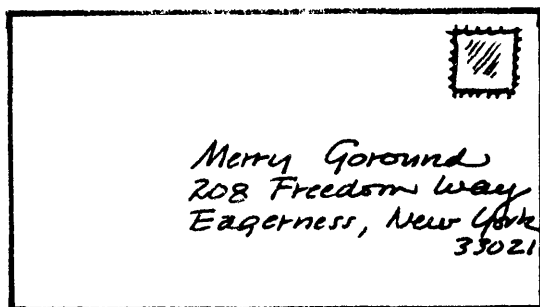 Merry Goround
208 Freedom Way
Eagerness, New York
33021